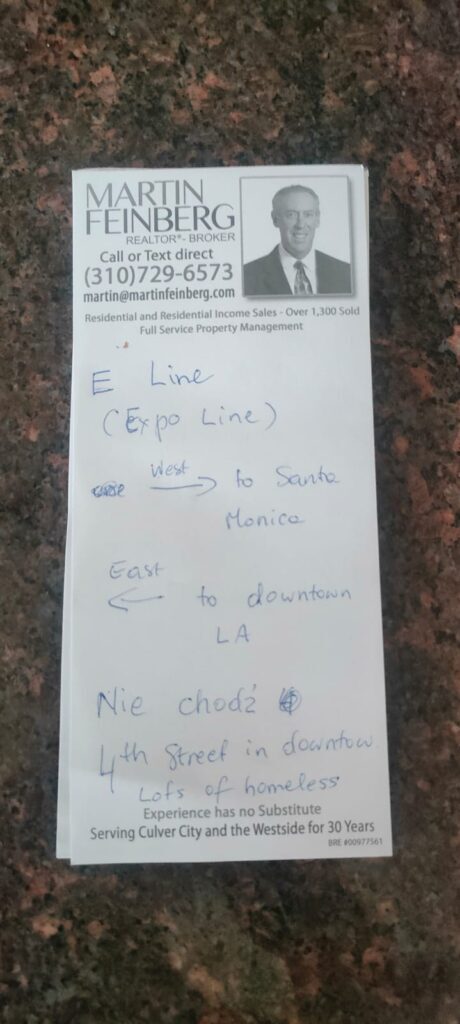 MARTIN
FEINBERG
REALTOR®- BROKER
Call or Text direct
(310)729-6573
martin@martinfeinberg.com
Residential and Residential Income Sales - Over 1,300 Sold
Full Service Property Management
E Line
(Expo Line)
West
→ to Santa
Monica
East
← to downtown
LA
Nie chodź
4th Street in downtow.
Lots of homeless
Experience has no Substitute
Serving Culver City and the Westside for 30 Years
BRE #00977561